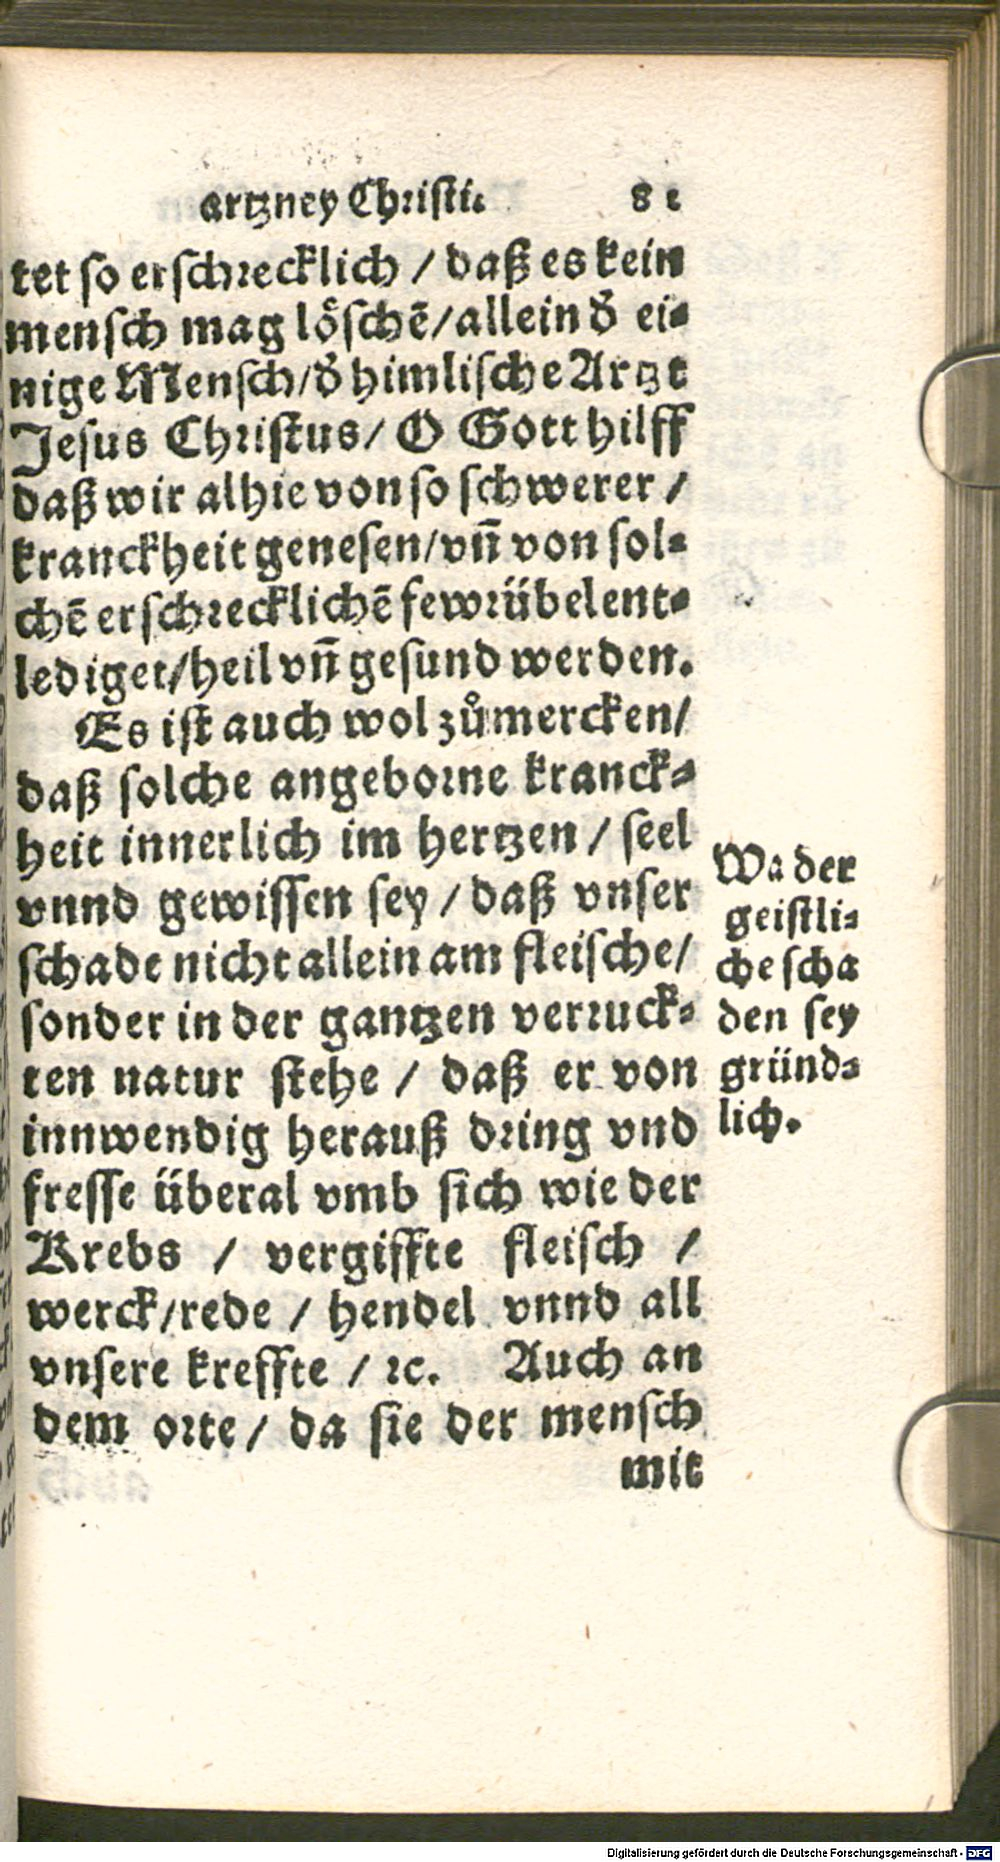 artzney Christi. 81
tet so erschrecklich / daß es kein
mensch mag löschẽ/allein d̓ ei-
nige Mensch/d̓ himlische Artzt
Jesus Christus/ O Gott hilff
daß wir alhie von so schwerer /
kranckheit genesen/vñ von sol-
chẽ erschrecklichẽ fewrübel ent-
lediget/heil vñ gesund werden.
Es ist auch wol zů mercken/
daß solche angeborne kranck-
heit innerlich im hertzen / seel
vnnd gewissen sey / daß vnser
schade nicht allein am fleische/
sonder in der gantzen verruck-
ten natur stehe / daß er von
innwendig herauß dring vnd
fresse überal vmb sich wie der
Krebs / vergiffte fleisch /
werck/rede / hendel vnnd all
vnsere kreffte / ⁊c. Auch an
dem orte/ da sie der mensch
mit
Wa der
geistli-
che scha
den sey
gründ-
lich.
Digitalisierung gefördert durch die Deutsche Forschungsgemeinschaft - DFG